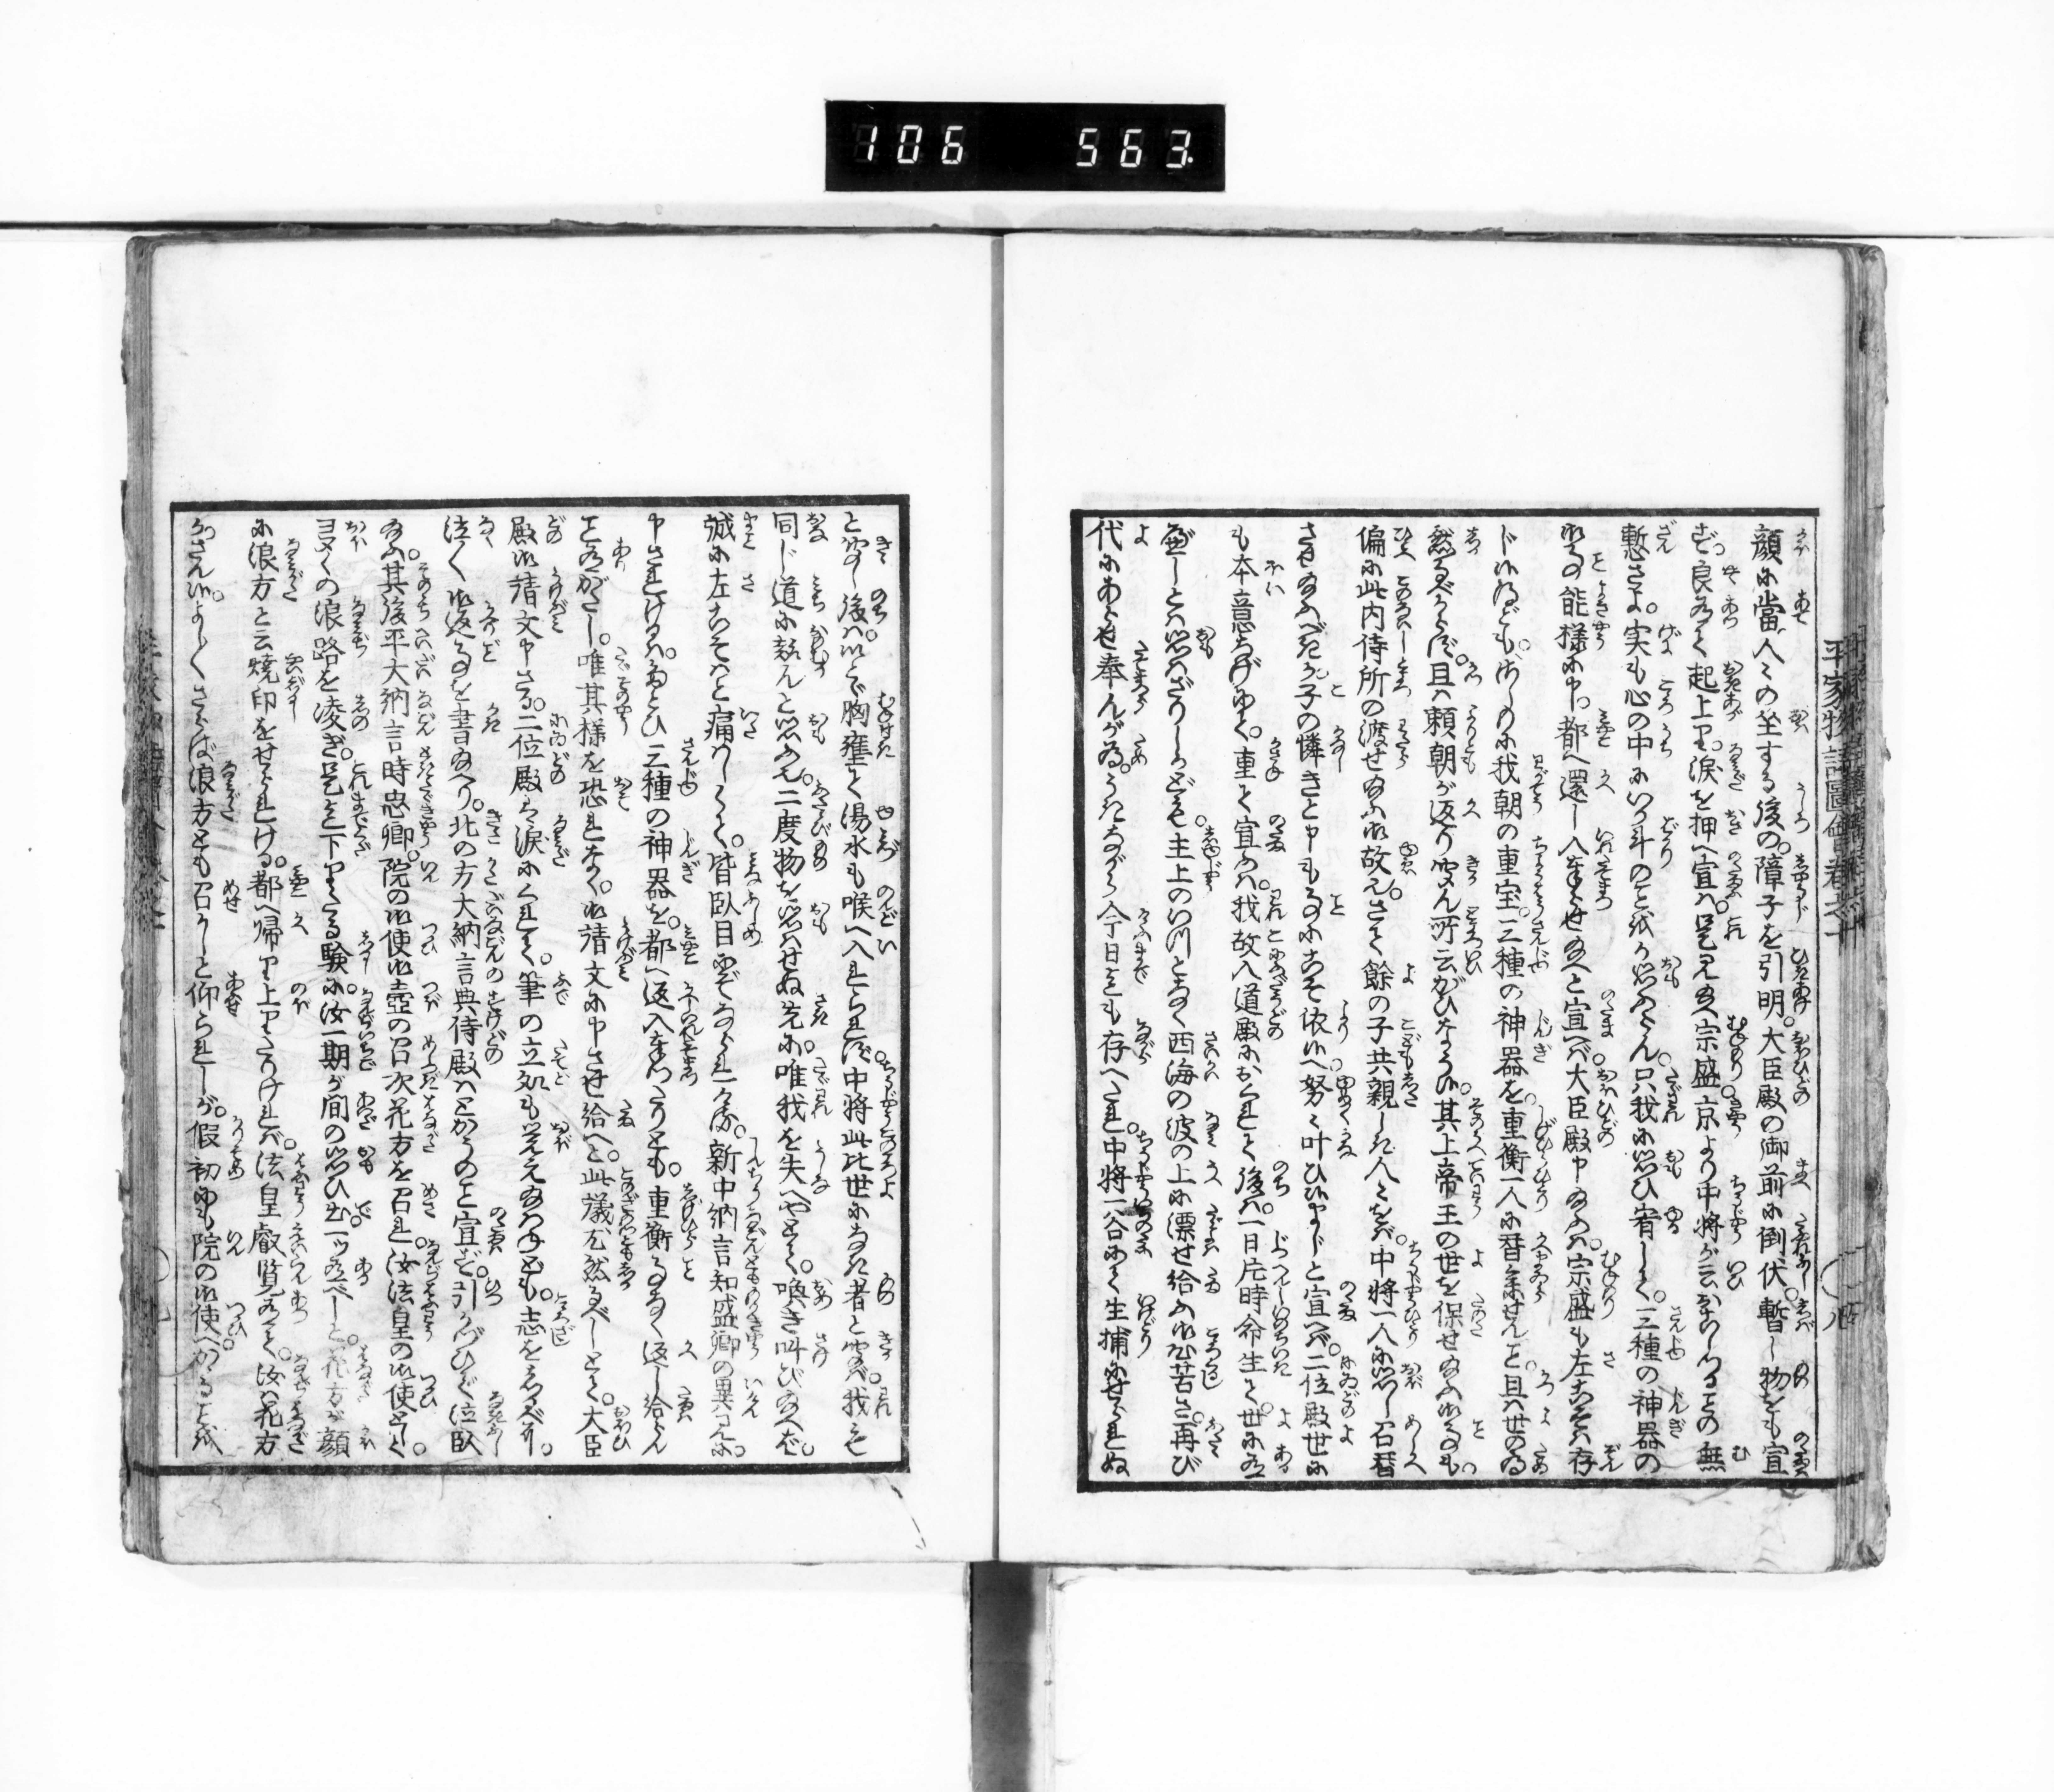 106 563
平家物語圖會卷之十
顔に當人々の坐する後の障子を引明大臣殿の御前に倒伏暫し物をも宣
ず。良有て起上り涙を押へ宣ふは是見給へ宗盛京より中将が云おこしつることの無
慙さよ。実も心の中にいか斗のことをか思ふらん只我に思ひ宥して三種の神器の
御事能様に申て都へ還し入奉らせ給へと宣へば大臣殿申給ふは宗盛も左こそは存
じ候へども。さしもに我朝の重宝三種の神器を重衡一人に替参せんと且は世の為
然るべからず。且は頼朝が返り聞ん所云がひなう候。其上帝王の世を保せ給ふ御事も
偏に此内侍所の渡せ給ふ御故也。さて餘の子共親しき人々をば中将一人に思し召替
させ給ふべきか子の憐きと申も事にこそ依候へ努々叶ひ候まじと宣へば二位殿世に
も本意なげにて。重て宣ふは我故入道殿におくれて後は一日片時命生て世に在
べしとは思はざりしかども主上のいつとなく西海の波の上に漂せ給ふ御心苦さ再び
代にあらせ奉んが為。うきながら今日迄も存へたれ中将一谷にて生捕にせられぬ
と聞し後はいとど胸塞て湯水も喉へ入られず中将此世になき者と聞ば我も
同じ道に赴んと思ふ也。二度物を思はせぬ先に唯我を失へやとて喚き叫び給へば。
誠に左こそはと痛はしくて。皆臥目にぞなられける。新中納言知盛卿の異見に
申されけるは。たとひ三種の神器を都へ返入奉つたりとも。重衡事なく返し給らん
こと有がたし。唯其様を恐れなく。御請文に申させ給へと此議尤然るべしとて。大臣
殿御請文申さる。二位殿は涙にくれて。筆の立処も覚え給はねども。志をしるべに。
泣く御返事を書給へり。北の方大納言典侍殿はとかうのこと宣ず引かづひて泣臥
給ふ。其後平大納言時忠卿。院の御使御壺の召次花方を召れ汝法皇の御使として。
多くの浪路を凌ぎ。是迄下りたる験に。汝一期が間の思ひ出一ツ有べしと。花方が顔
に浪方と云焼印をせられける。都へ帰り上りたりければ法皇叡覧有て。汝は花方
かさん候。よしよしさらば浪方とも召かしと仰られしが。假初にも院の御使へかることを